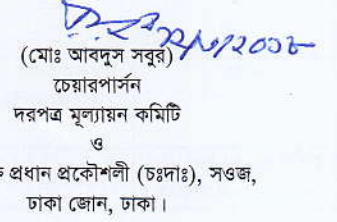 (মোঃ আবদুস সবুর)
চেয়ারপার্সন
দরপত্র মূল্যায়ন কমিটি
ও
প্রধান প্রকৌশলী (চঃদাঃ), সওজ,
ঢাকা জোন, ঢাকা।